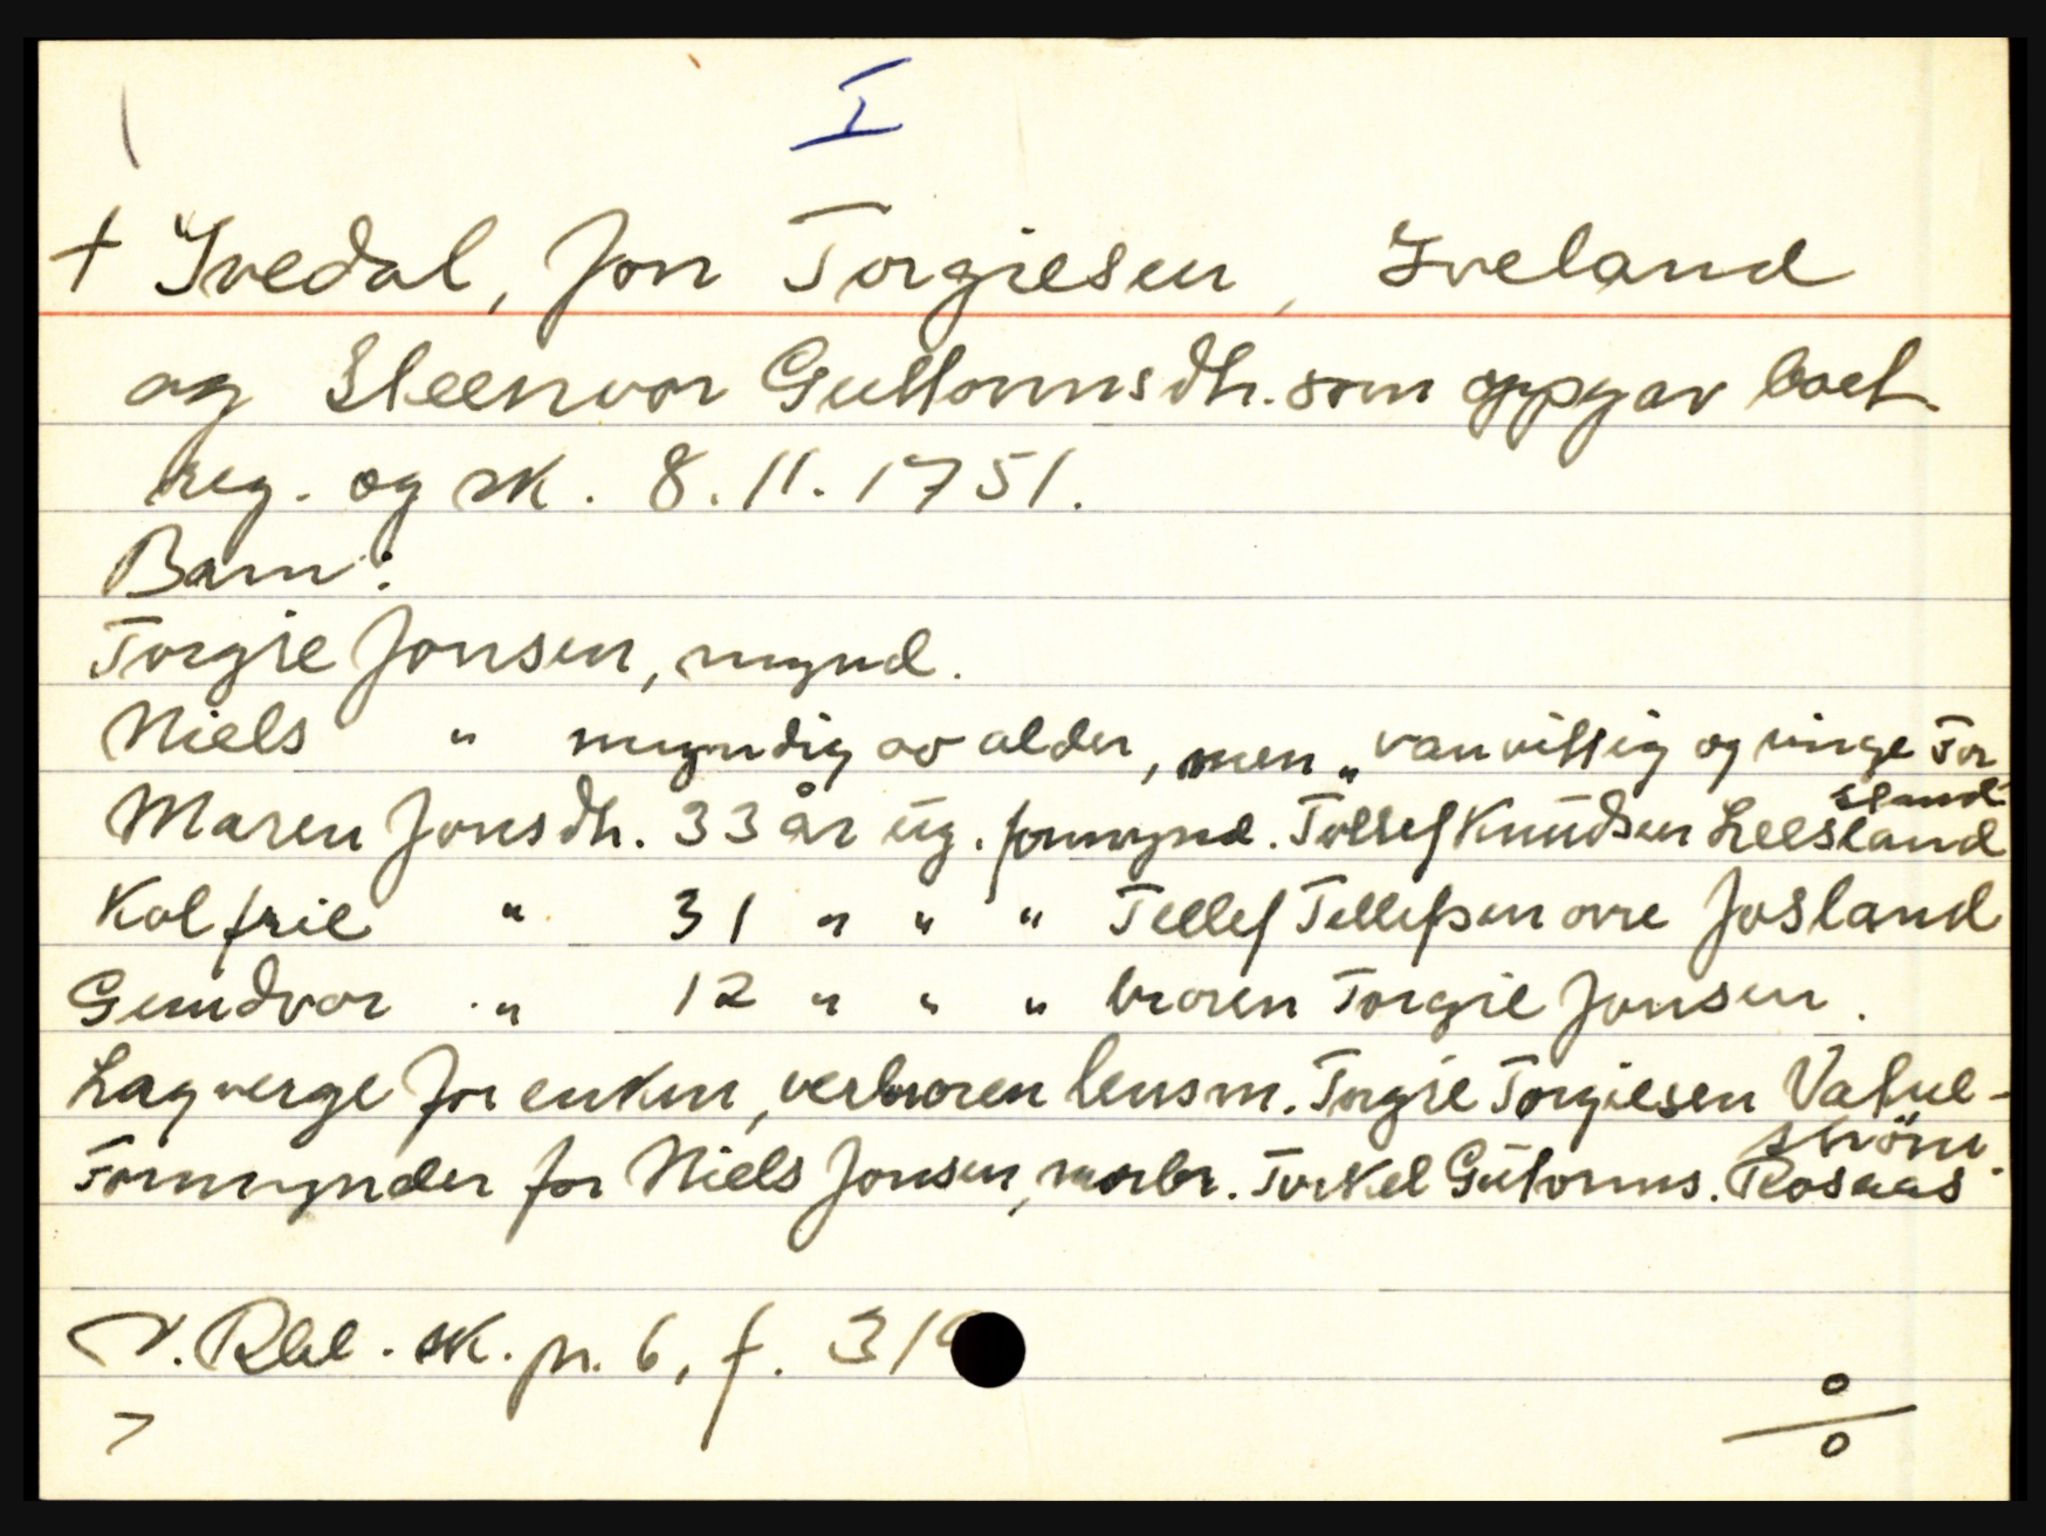 I
+ Ivedal, Jon Torgiesen, Iveland
og Steenvor Guttormsdtr. som oppgav boet
reg. og sk. 8.11.1751.
Barn:
Torgie Jonsen, mynd.
Niels " myndig av alder, men „vanvittig og ringe For
stand"
Maren Jonsdtr. 33 år ug. formynd. Tollef Knudsen Leesland
Kolfrie " 31 " " " Tellef Tellefsen øvre Josland
Gundvor " 12 " " " broren Torgie Jonsen.
Lagverge for enken, verbroren lensm. Torgie Torgiesen Vatne-
strøm.
Formynder for Niels Jonsen, morbr. Torkel Gutorms. Rosaas
V. Rbl. sk. pr. 6, f. 31